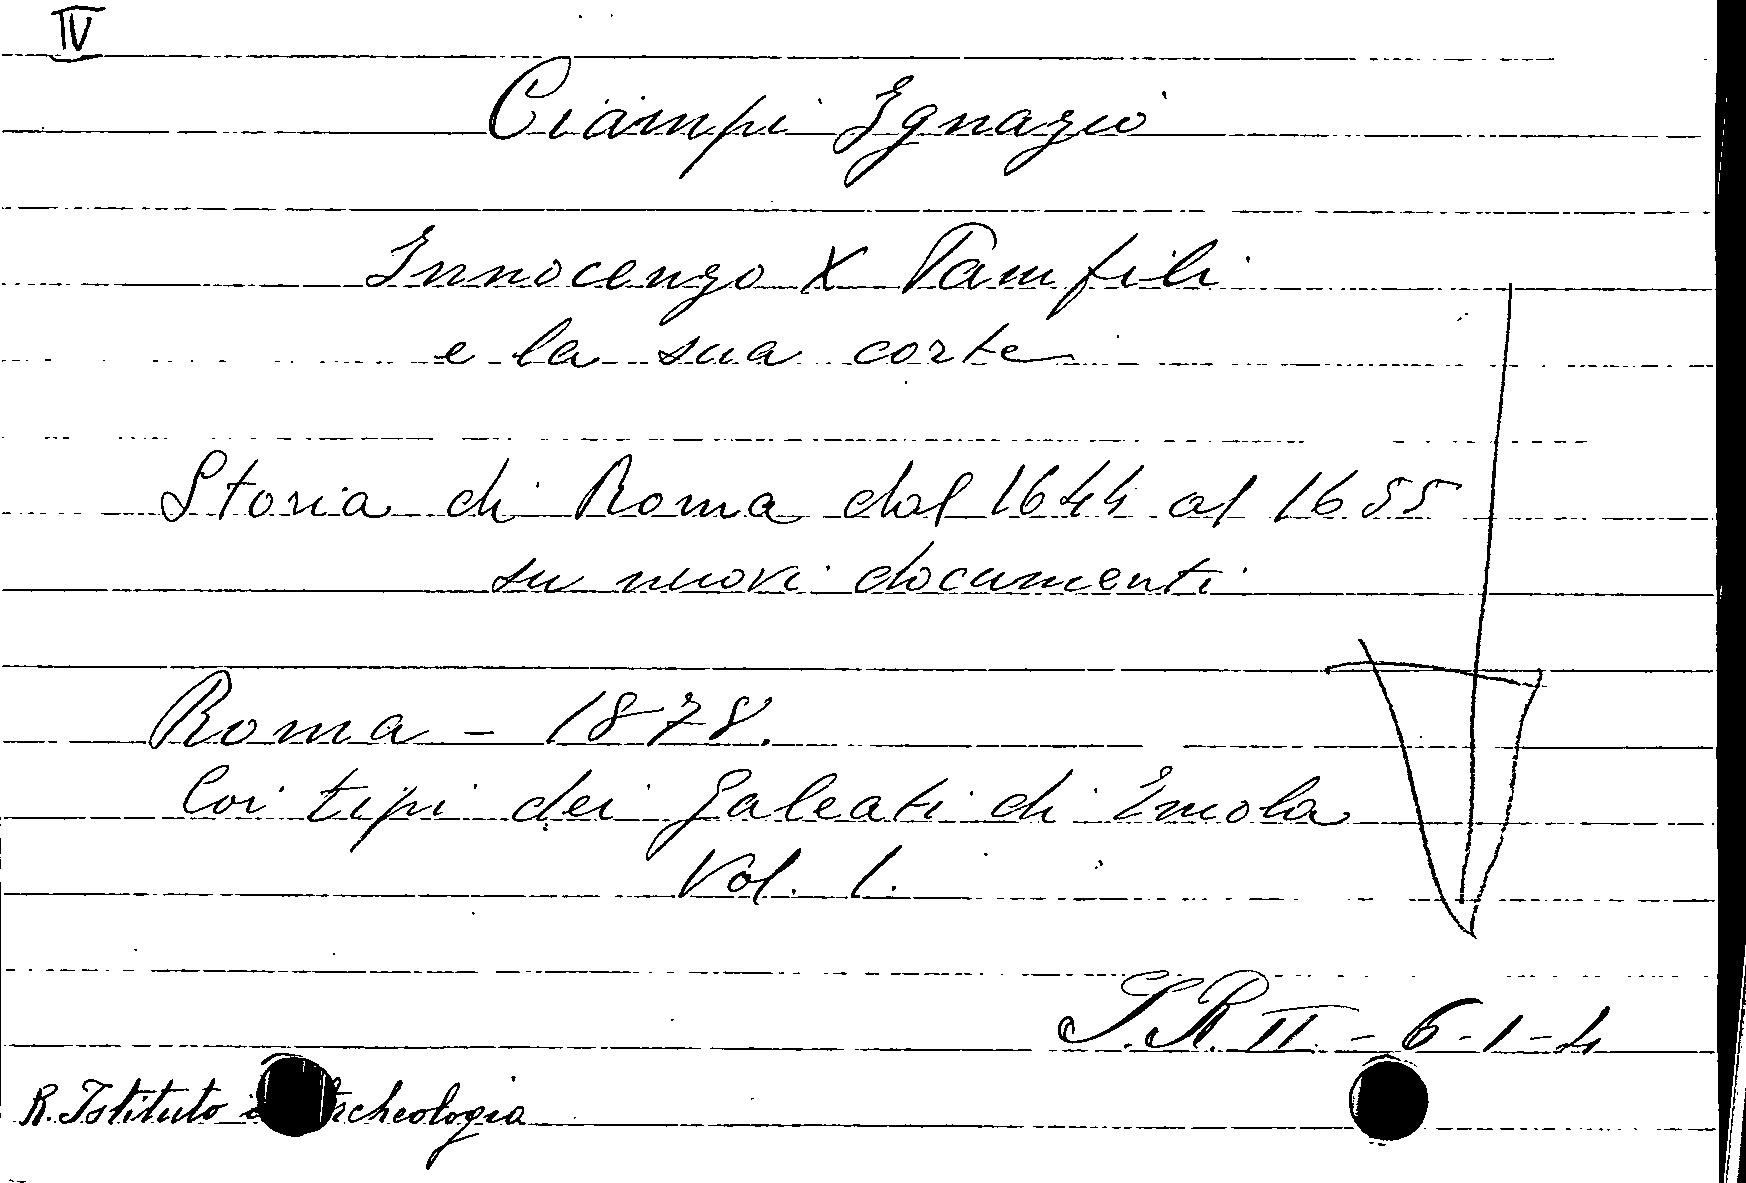 IV
Ciampi Ignazio
Innocenzo X Pamfili
e la sua corte
Storia di Roma dal 1644 al 1655
su nuovi documenti
Roma - 1878.
Coi tipi dei Galeati di Imola
Vol. 1.
S.R. II - 6-1-4
R. Istituto Archeologia